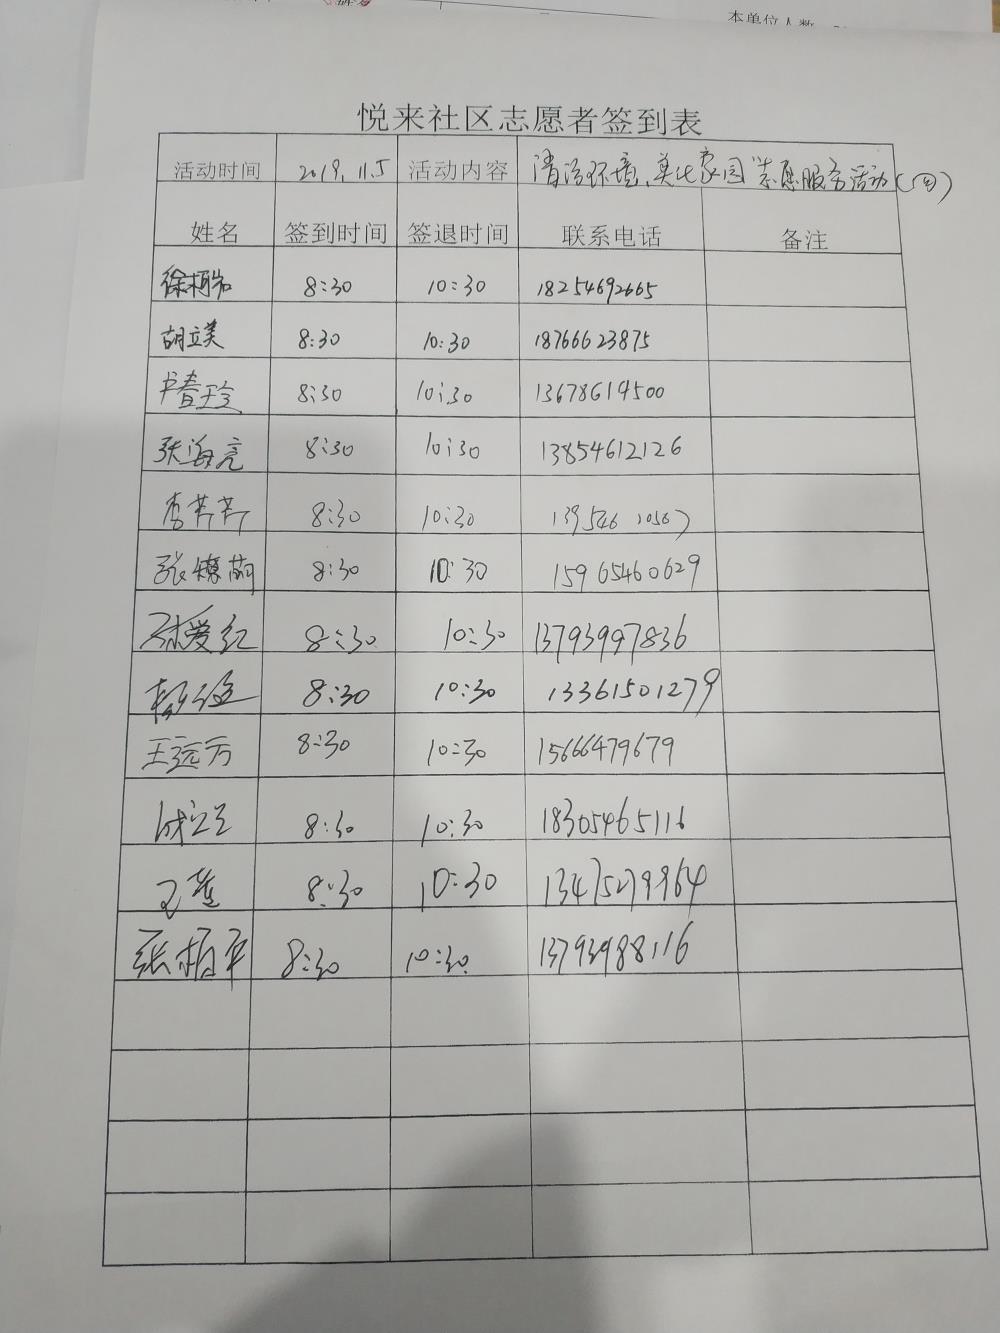 本单位人数
悦来社区志愿者签到表
活动时间 2019.11.5 活动内容 清洁环境、美化家园"志愿服务活动(四)
姓名 签到时间 签退时间 联系电话 备注
8:30 10:30 18254692665
胡立美 8:30 10:30 18766623875
8:30 10:30 13678614500
张海亮 8:30 10:30 13854612126
李芹芹 8:30 10:30
张 8:30 10:30 15965460629
孙爱红 8:30 10:30 13793997836
8:30 10:30 13361501279
王远方 8:30 10:30 15666479679
成立 8:30 10:30 18305465116
8:30 10:30
张梅平 8:30 10:30 13793988116